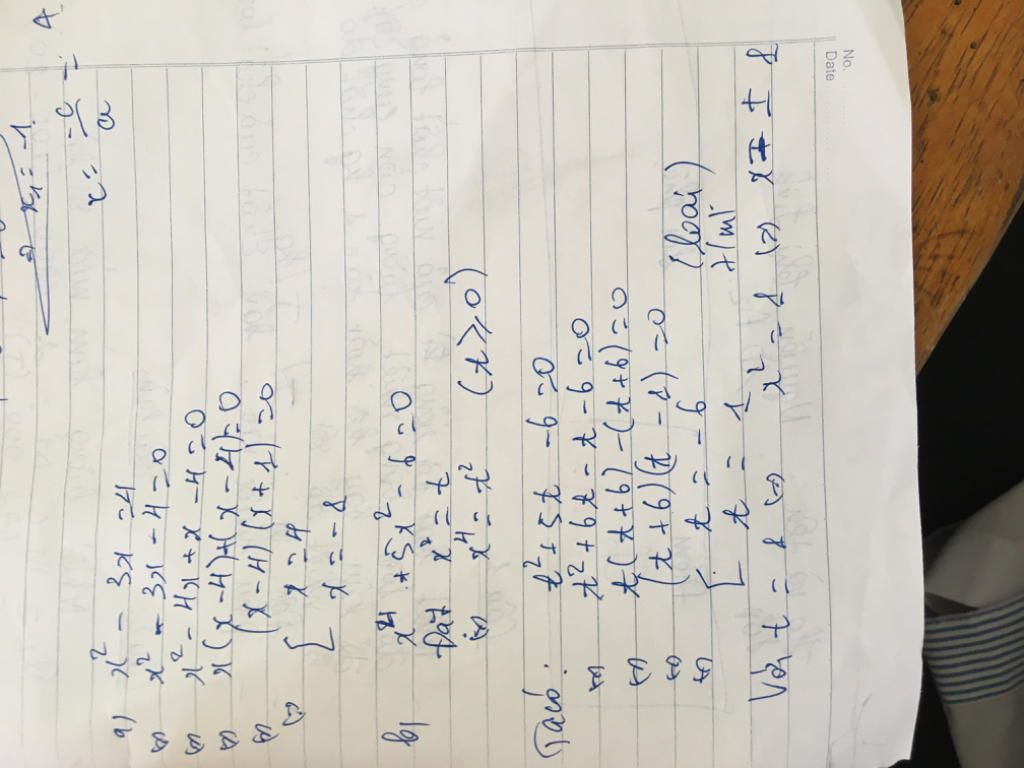 x₁ = -1
x = -c/a = 4
a) x² - 3x = 4
⇔ x² - 3x - 4 = 0
⇔ x² - 4x + x - 4 = 0
⇔ x(x - 4) + (x - 4) = 0
⇔ (x - 4)(x + 1) = 0
⇔ [ x = 4
x = -1
b) x⁴ + 5x² - 6 = 0
Đặt x² = t
⇔ x⁴ = t² (t ≥ 0)
Ta có: t² + 5t - 6 = 0
⇔ t² + 6t - t - 6 = 0
⇔ t(t + 6) - (t + 6) = 0
⇔ (t + 6)(t - 1) = 0
⇔ [ t = -6 (loại)
t = 1 t/m
Với t = 1 ⇔ x² = 1 ⇔ x = ± 1
No.
Date